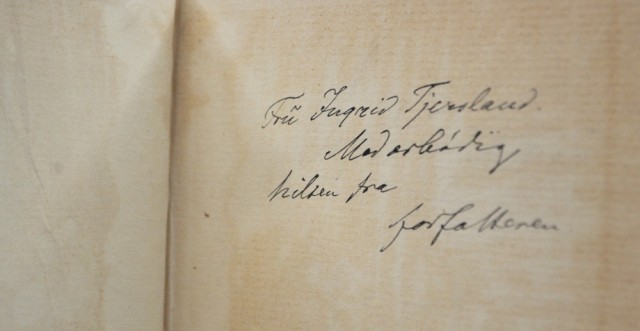 Frū Ingrid Tjersland.
Med ærbödig
hilsen fra
forfatteren